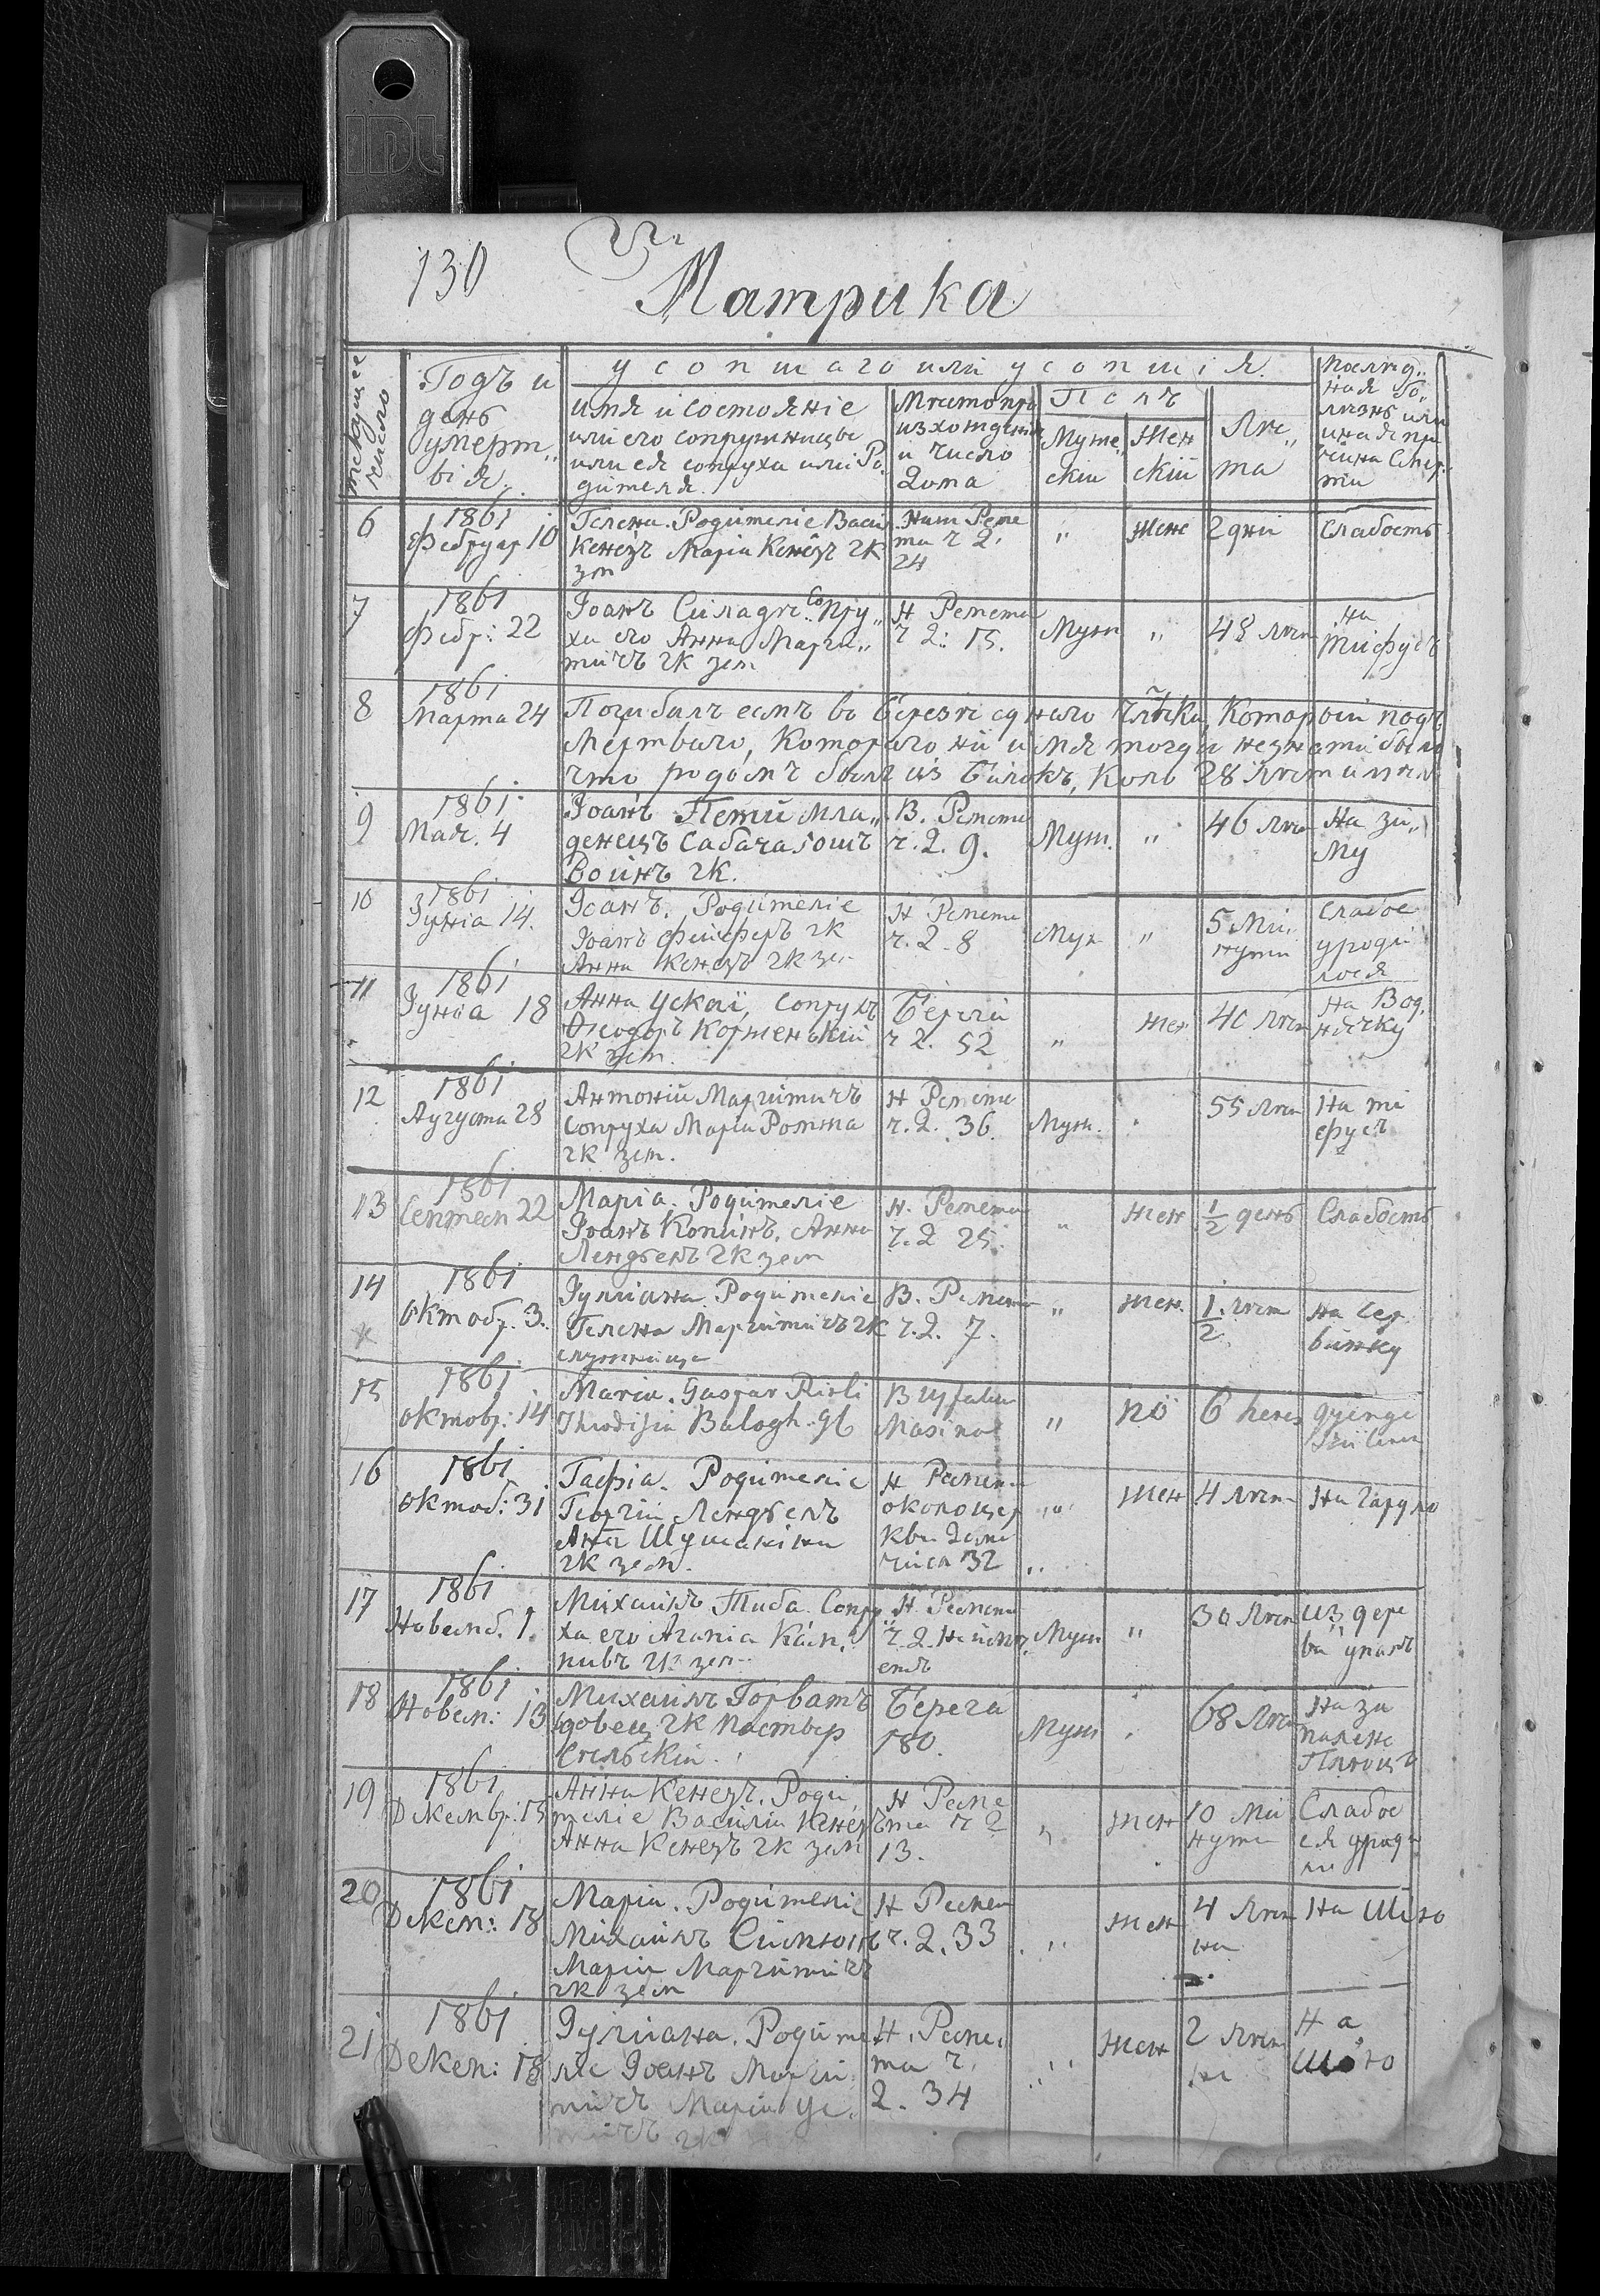 130
Матрика
текущее число
Годъ и день умертвія.
усопшаго или усопшія.
имя и состояніе
или его сопружницы
или ея сопруха или Ро,,
дителя.
Мѣсто про
изхожденія
и число
Дома
Полъ
Муже,,
скіи
Жен
скій
Лѣ,,
та
Послѣд,,
ная бо,,
лѣзнь или
иная при
чина Смер,,
ти
6
1861
Фебруар 10
Гелена. Родителіе Васил
Кенезъ Маріа Кенезъ гк
зем
Ниж Реме
та ч Д.
24
,,
жен
2 дни
Слабость
7
1861
Февр: 22
Іоанъ Силадь. Сопру,,
ха его Анна Марги,,
тичъ гк зем
Н Ремета
ч Д: 15.
Муж
,,
48 лѣт
на
Тифусъ
8
1861
Марта 24
Погибалъ есмъ въ Березѣ єдного члвка, Которыи подъ
мертваго, Которого ни имя тогди незнати было
что родомъ былъ из Білокъ, Коло 28 лѣт имѣлъ
9
1861
Мая. 4
Іоанъ Пети мла,,
денецъ Сабадагошъ
Воинъ гк.
В. Ремета
ч. Д. 9.
Муж.
,,
46 лѣт
На зи,,
му
10
1861
Іуніа 14.
Іоанъ. Родителіе
Іоанъ Фейферъ гк
Анна Кенезъ гк зем
Н Ремета
ч. Д. 8
Муж
,,
5 Ми,,
нути
Слабое
уроди
лося
11
1861
Іуніа 18
Анна Ускаї, сопрухъ
Феодоръ Корженькій
гк зем.
Береги
ч Д. 52
,,
жен
40 лѣт
на Вод,
нячку
12
1861
Аугуста 28
Антоній Маргитичъ
сопруха Маріа Рожка
гк зем.
Н Ремета
ч. Д. 36.
Муж.
55 лѣт
На ти
фусъ
13
1861
Септем 22
Маріа. Родителіе
Іоанъ Копинъ. Анна
Лендьелъ гк зем
Н. Ремета
ч. Д 25.
,,
жен
1/2 день
Слабость
14
1861
Октобр. 3.
Іуліана Родителіе
Гелена Маргитичъ гк
служница
В. Ремета
ч. Д. 7.
,,
жен.
1/2 лѣт
на Чер
винку
15
1861
октовр: 14
Maria. Gaspar
Balogh gk
Buj falu
,,
nö
6 hetes
gyenge
16
1861
октоб: 31
Гафіа. Родителіе
Георгіи Лендьелъ
Анна Шушакіна
гк зем.
Н Ремета
около цер
кви Дома
число 32
,,
Жен
4 лѣт
На гардло
17
1861
Новемб. 1.
Михаилъ Тиба. Сопру
ха его Агапіа
гк зем
Н Ремета
Муж
,,
30 лѣт
из дере
ва упалъ
18
1861
Новем: 13
Михаилъ Горватъ
вдовец гк пастыр
сельскій.
Берега
180.
Муж
68 лѣт
На за
19
1861
Декембр: 15
Анна Кенезъ. Роди,
теліе Василіи Кенезъ
Анна Кенезъ гк зем
Н Реме
та ч Д
13.
,,
жен
10 ми
нути
Слабое
ся уроди
ло
20
1861
Декем: 18
Маріа. Родителіе
Михаилъ Симюнъ
Маріа Маргитичъ
гк зем
Н Ремет
ч. Д. 33
,,
жен
4 лѣт
на
На Шію
21
1861
Декем: 18
Іуліана. Родите
ліе Іоанъ Марги
тичъ Маріа Ус,
тичъ гк
Н. Реме,
та ч.
Д. 34
,,
жен
2 лѣт
На
Шію